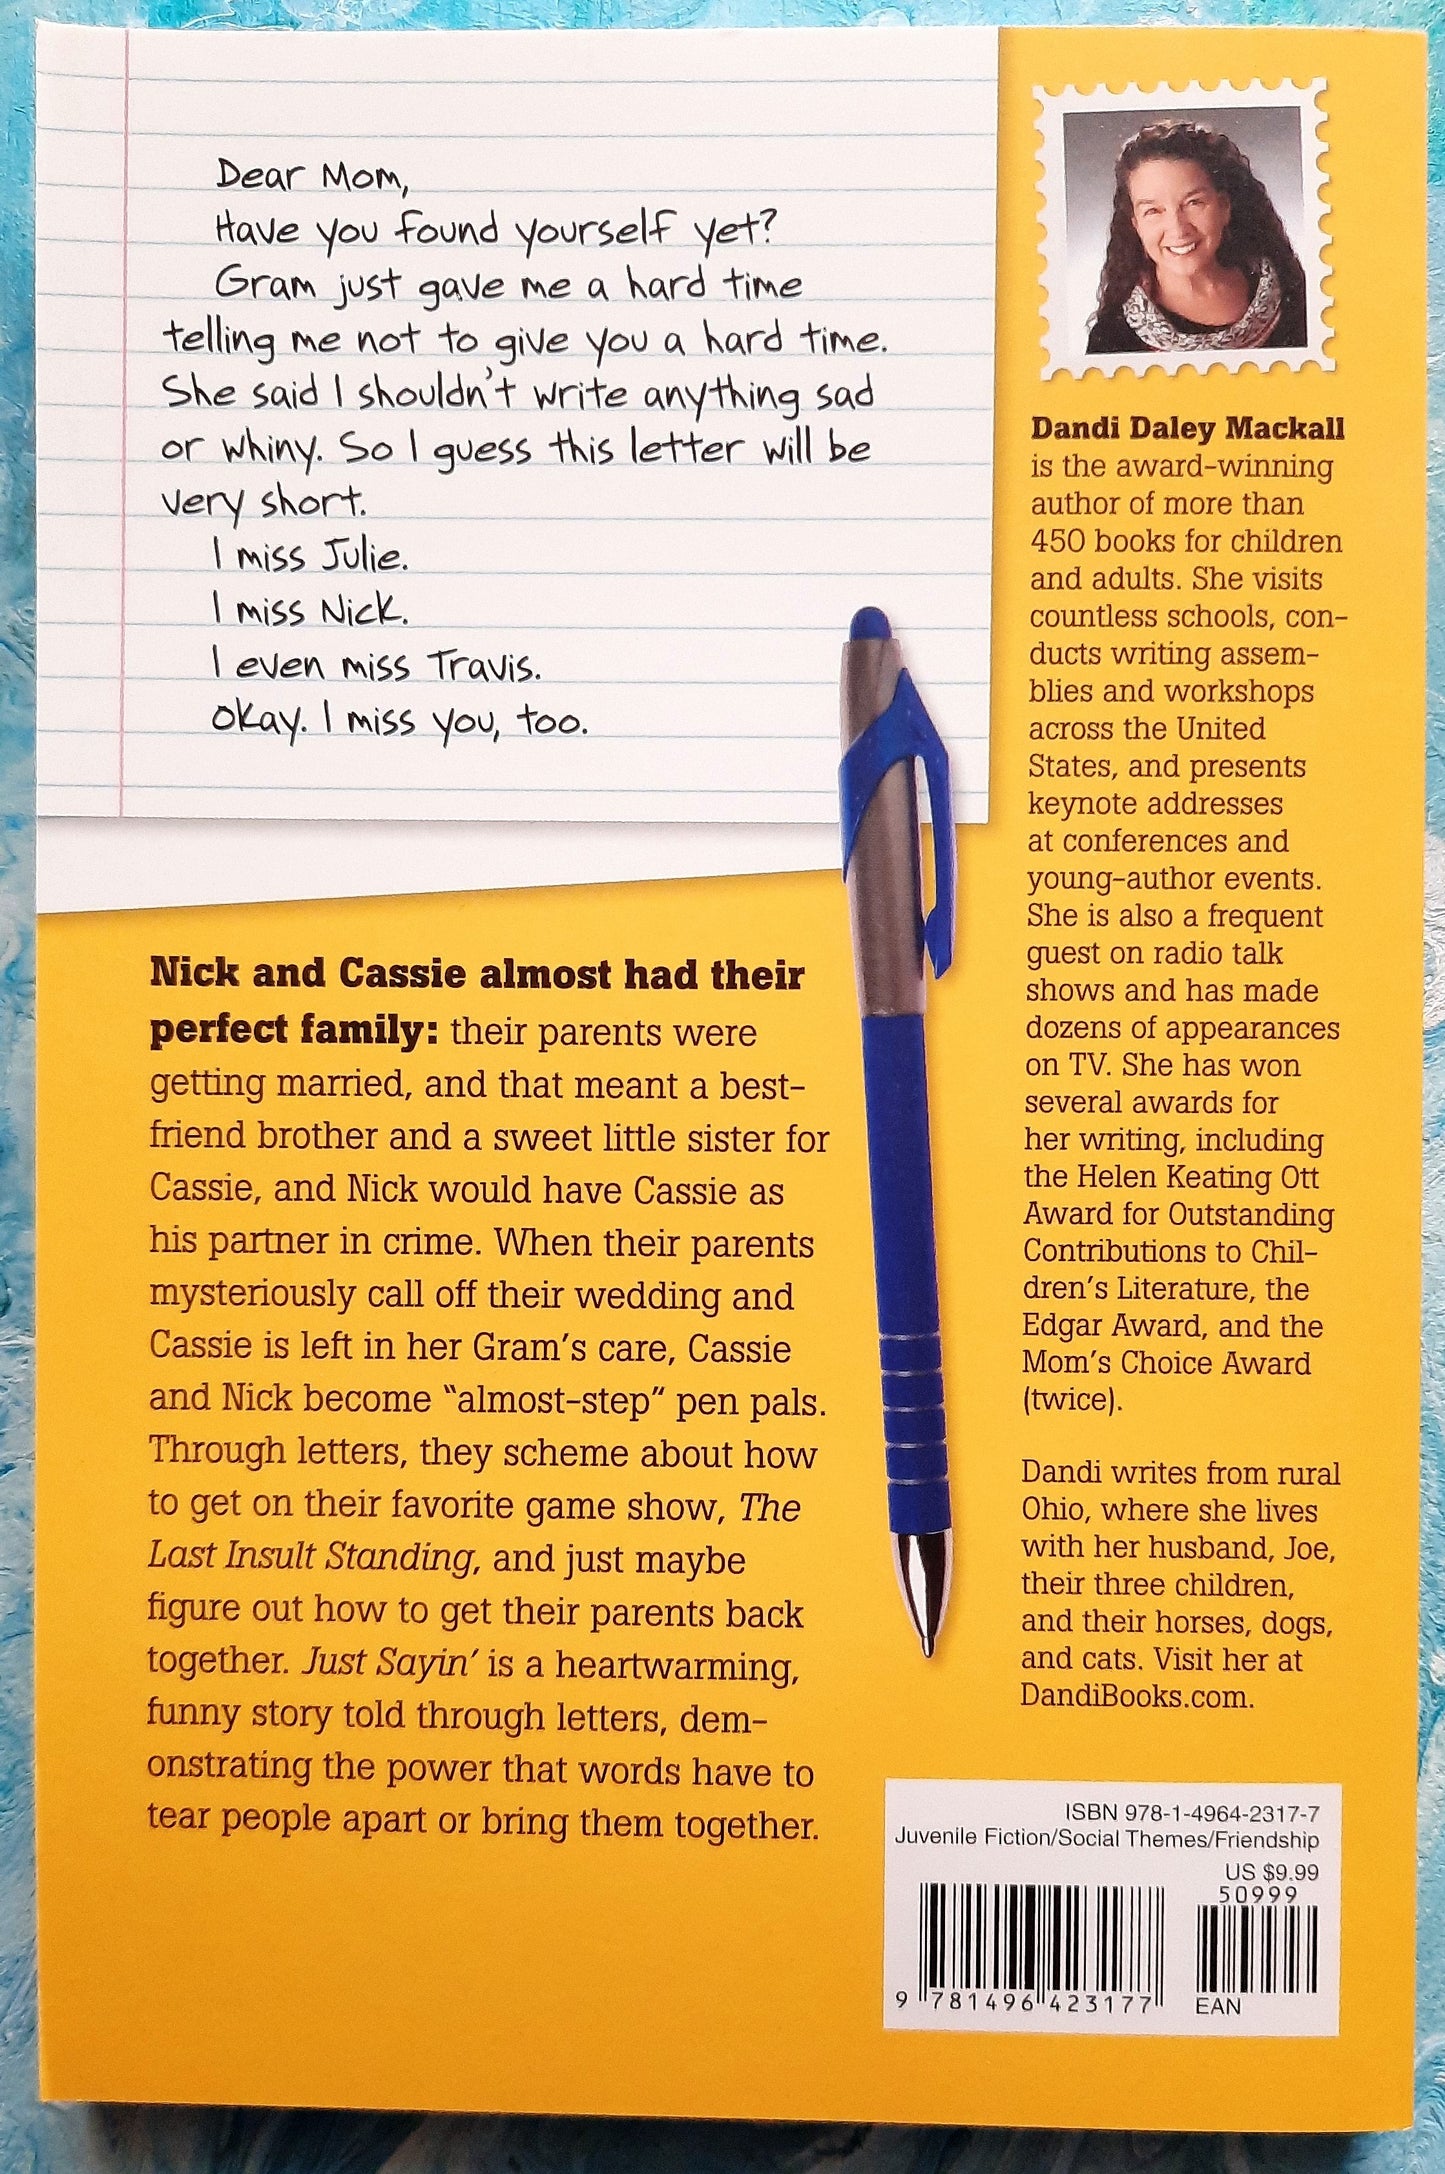 Dear Mom,
Have you found yourself yet?
Gram just gave me a hard time
telling me not to give you a hard time.
She said I shouldn't write anything sad
or whiny. So I guess this letter will be
very short.
I miss Julie.
I miss Nick.
I even miss Travis.
Okay. I miss you, too.
Nick and Cassie almost had their
perfect family: their parents were
getting married, and that meant a best-
friend brother and a sweet little sister for
Cassie, and Nick would have Cassie as
his partner in crime. When their parents
mysteriously call off their wedding and
Cassie is left in her Gram's care, Cassie
and Nick become “almost-step” pen pals.
Through letters, they scheme about how
to get on their favorite game show, The
Last Insult Standing, and just maybe
figure out how to get their parents back
together. Just Sayin' is a heartwarming,
funny story told through letters, dem-
onstrating the power that words have to
tear people apart or bring them together.
Dandi Daley Mackall
is the award-winning
author of more than
450 books for children
and adults. She visits
countless schools, con-
ducts writing assem-
blies and workshops
across the United
States, and presents
keynote addresses
at conferences and
young-author events.
She is also a frequent
guest on radio talk
shows and has made
dozens of appearances
on TV. She has won
several awards for
her writing, including
the Helen Keating Ott
Award for Outstanding
Contributions to Chil-
dren's Literature, the
Edgar Award, and the
Mom's Choice Award
(twice).
Dandi writes from rural
Ohio, where she lives
with her husband, Joe,
their three children,
and their horses, dogs,
and cats. Visit her at
DandiBooks.com.
ISBN 978-1-4964-2317-7
Juvenile Fiction/Social Themes/Friendship
US $9.99
50999
9 781496 423177
EAN